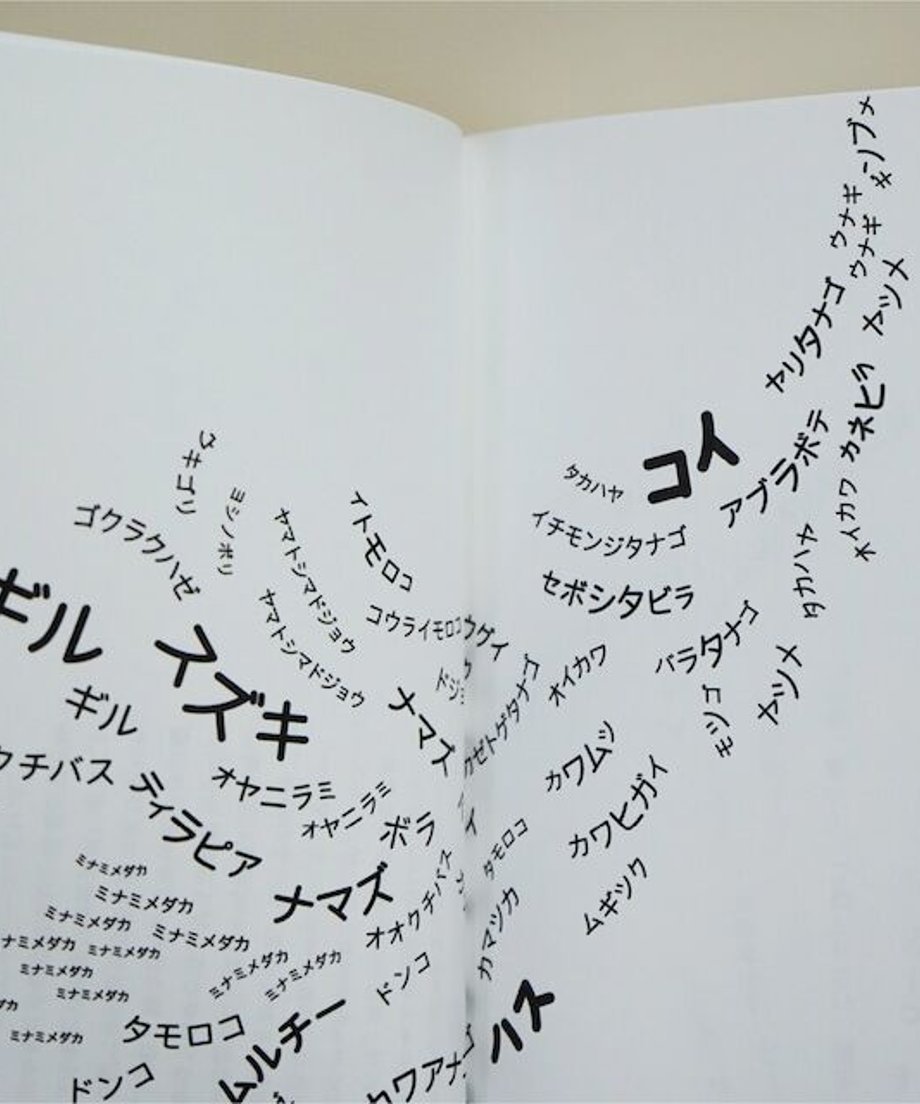 ウキゴリ
ヨシノボリ
ゴクラクハゼ
ヤマトシマドジョウ
イトモロコ
ヤマトシマドジョウ
コウライモロコ
ウグイ
ギル
スズキ
ギル
ナマズ
クチバス
オヤニラミ
ティラピア
オヤニラミ
ボラ
ミナミメダカ
ミナミメダカ
ナマズ
ミナミメダカ
ミナミメダカ
オオクチバス
ナミメダカ
ミナミメダカ
ミナミメダカ
ミナミメダカ
ミナミメダカ
ミナミメダカ
ドンコ
ミナミメダカ
タモロコ
ムルチー
ドンコ
カワアナゴ
ウナギ
ウナギ
ヤツメ
ヤリタナゴ
カネヒラ
コイ
アブラボテ
タカハヤ
オイカワ
イチモンジタナゴ
タカハヤ
セボシタビラ
バラタナゴ
オイカワ
ヤツメ
ゼゼトゲタナゴ
モツゴ
カワムツ
カワヒガイ
タモロコ
ムギツク
カマツカ
ハス